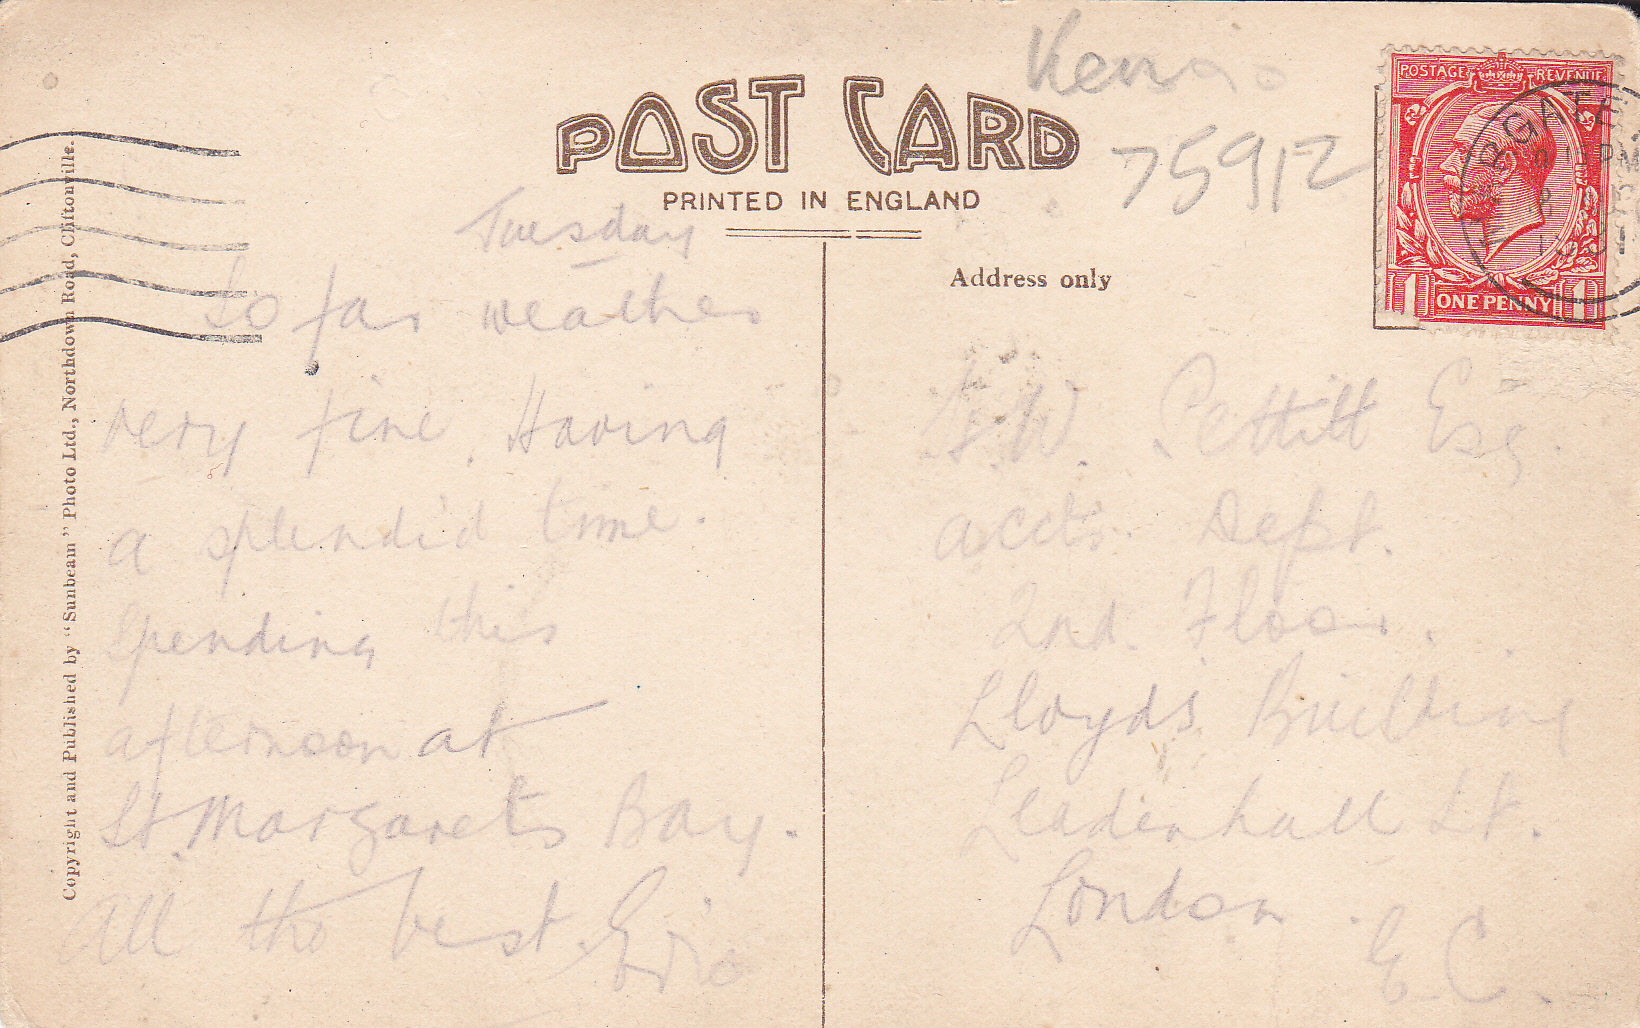 POST CARD
PRINTED IN ENGLAND
75912
POSTAGE REVENUE
ONE PENNY
1 1
MARGATE
Address only
Tuesday
So far weather
very fine. Having
a splendid time.
Spending this
afternoon at
St. Margarets Bay.
All the best. Eric
W. Pettitt Esq.
accts. Dept.
2nd. Floor.
Lloyds Building
Leadenhall St.
London.
E.C.
Copyright and Published by "Sunbeam" Photo Ltd., Northdown Road, Cliftonville.